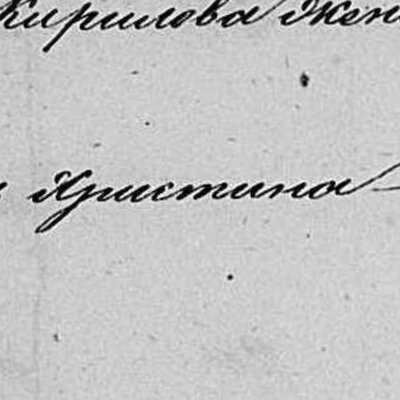 Кирилова Жен
Христина